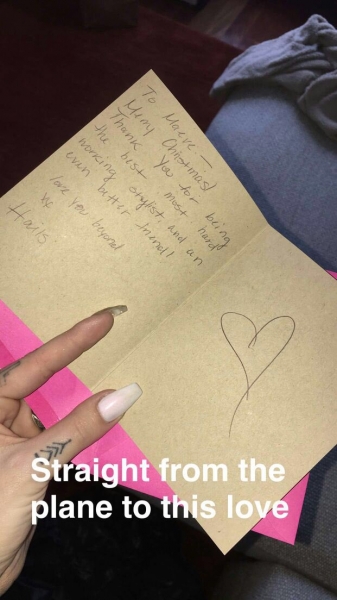 To Maeve -
Merry Christmas!
Thank You for being
the best most hard
working stylist and an
even better friend!
love you beyond
Hails
Straight from the
plane to this love